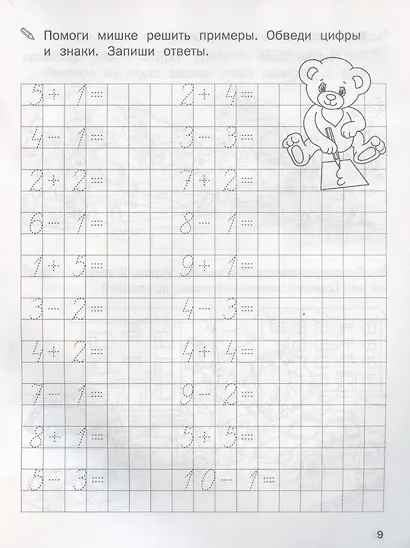 Помоги мишке решить примеры. Обведи цифры
и знаки. Запиши ответы.
5 + 1 = 2 + 4 =
4 - 1 = 3 - 3 =
2 + 2 = 7 + 2 =
6 - 1 = 8 - 1 =
1 + 5 = 9 + 1 =
3 - 2 = 4 - 3 =
4 + 2 = 4 + 4 =
7 - 1 = 9 - 2 =
8 + 1 = 5 + 5 =
5 - 3 = 10 - 1 =
9